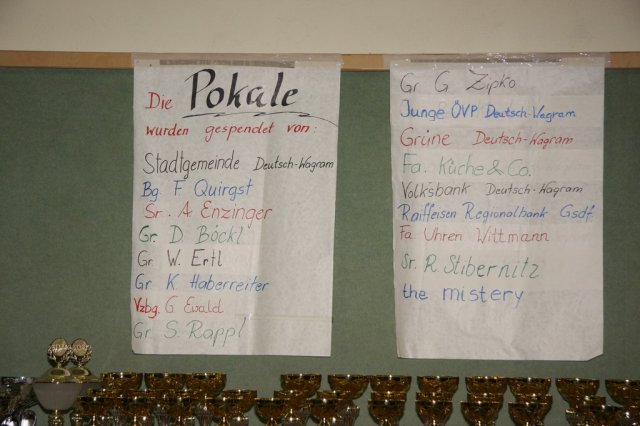 Die Pokale
wurden gespendet von:
Stadtgemeinde Deutsch-Wagram
Bg. F Quirgst
Sr. A. Enzinger
Gr. D. Böckl
Gr W. Ertl
Gr. K. Haberreiter
Vzbg. G Ewald
Gr S. Rappl
Gr G Zipko
Junge ÖVP Deutsch-Wagram
Grüne Deutsch-Wagram
Fa. Küche & Co.
Volksbank Deutsch-Wagram
Raiffeisen Regionalbank Gsdf
Fa Uhren Wittmann
Sr. R. Stibernitz
the mistery